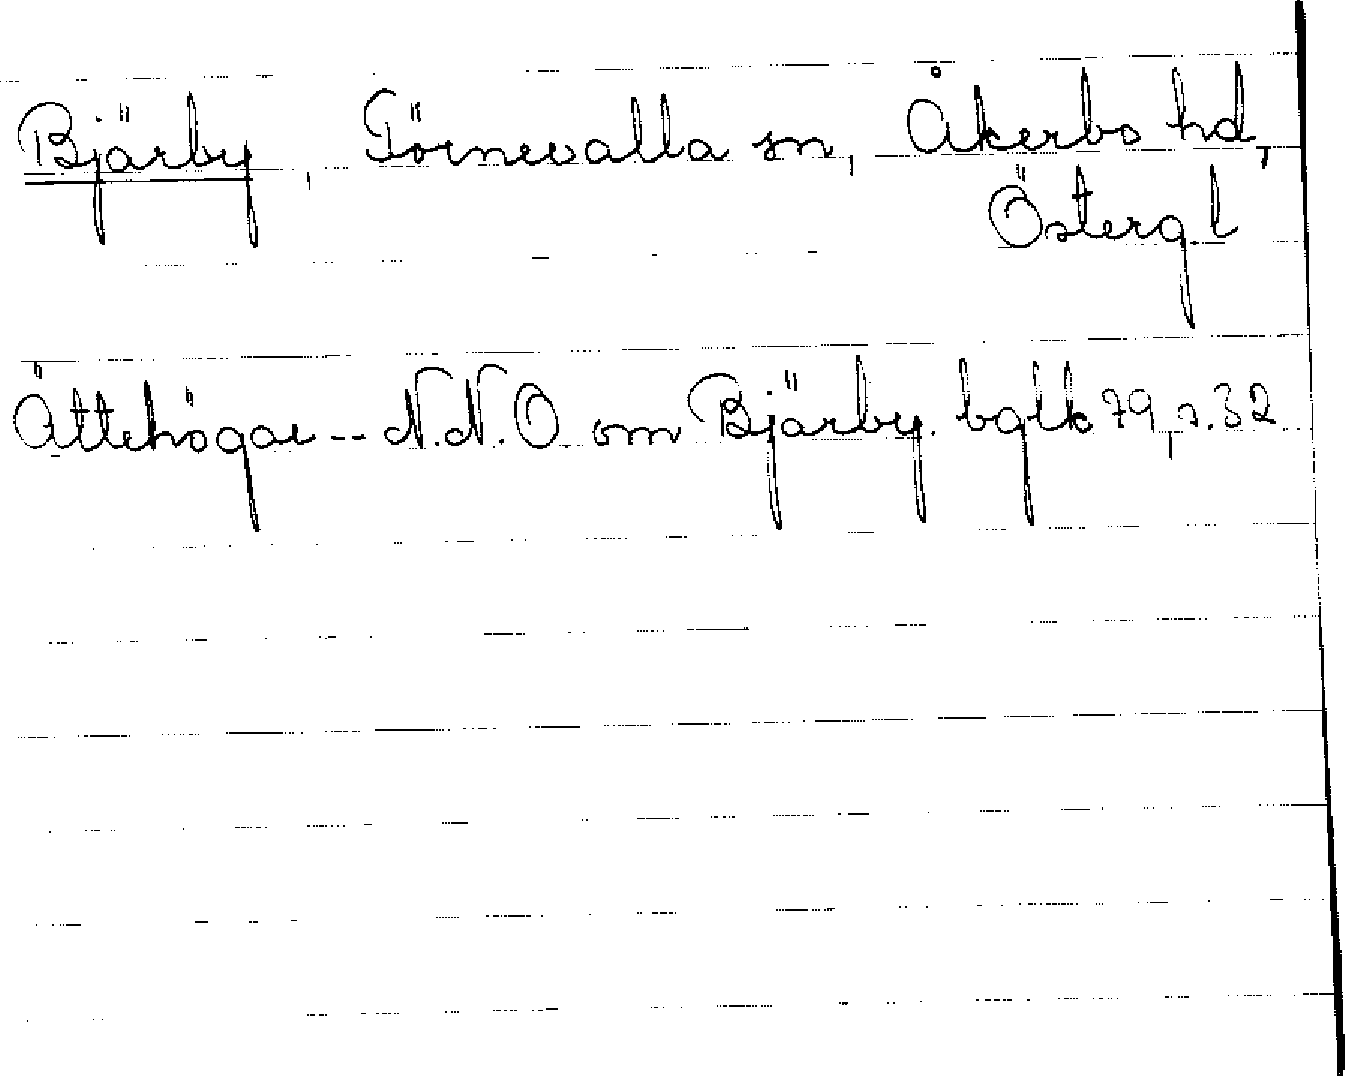 Bjärby, Törnevalla sn, Åkerbo hd,
Östergl
Ättehögar -- N.N.O om Bjärby. bglk 79, s. 32